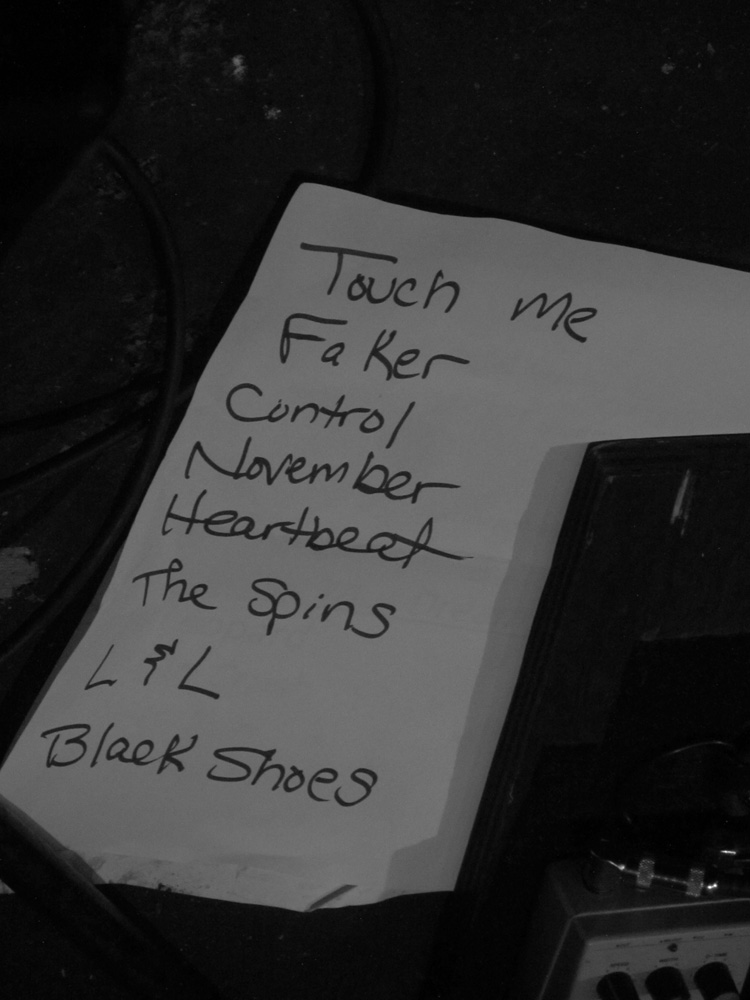 Touch me
Faker
Control
November
Heartbeat
The Spins
L & L
Black Shoes